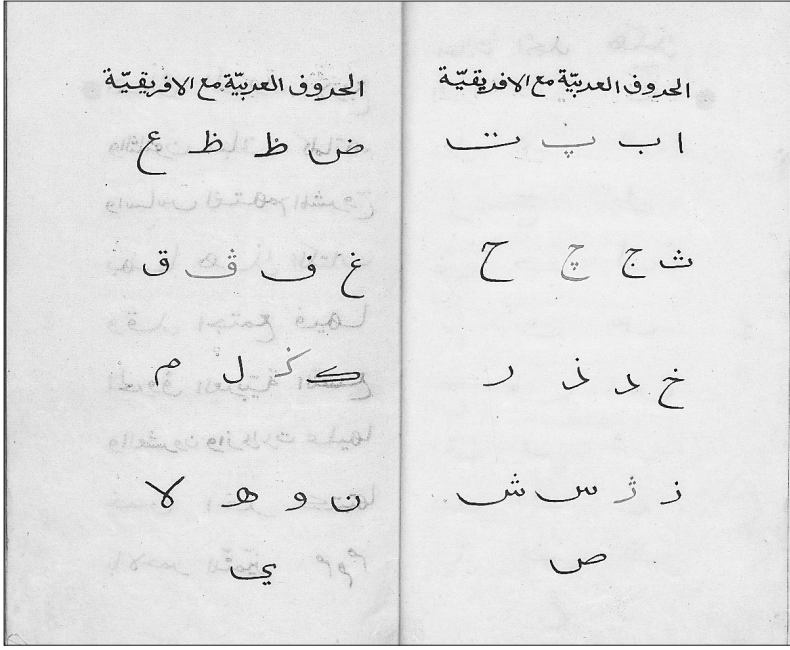 الحروف العربيّة مع الافريقيّة
ا ب پ ت
ث ج چ ح
خ د ذ ر
ز ژ س ش
ص
الحروف العربيّة مع الافريقيّة
ض ظ ظ ع
غ ف ڤ ق
ك ل م
ن و ه لا
ي